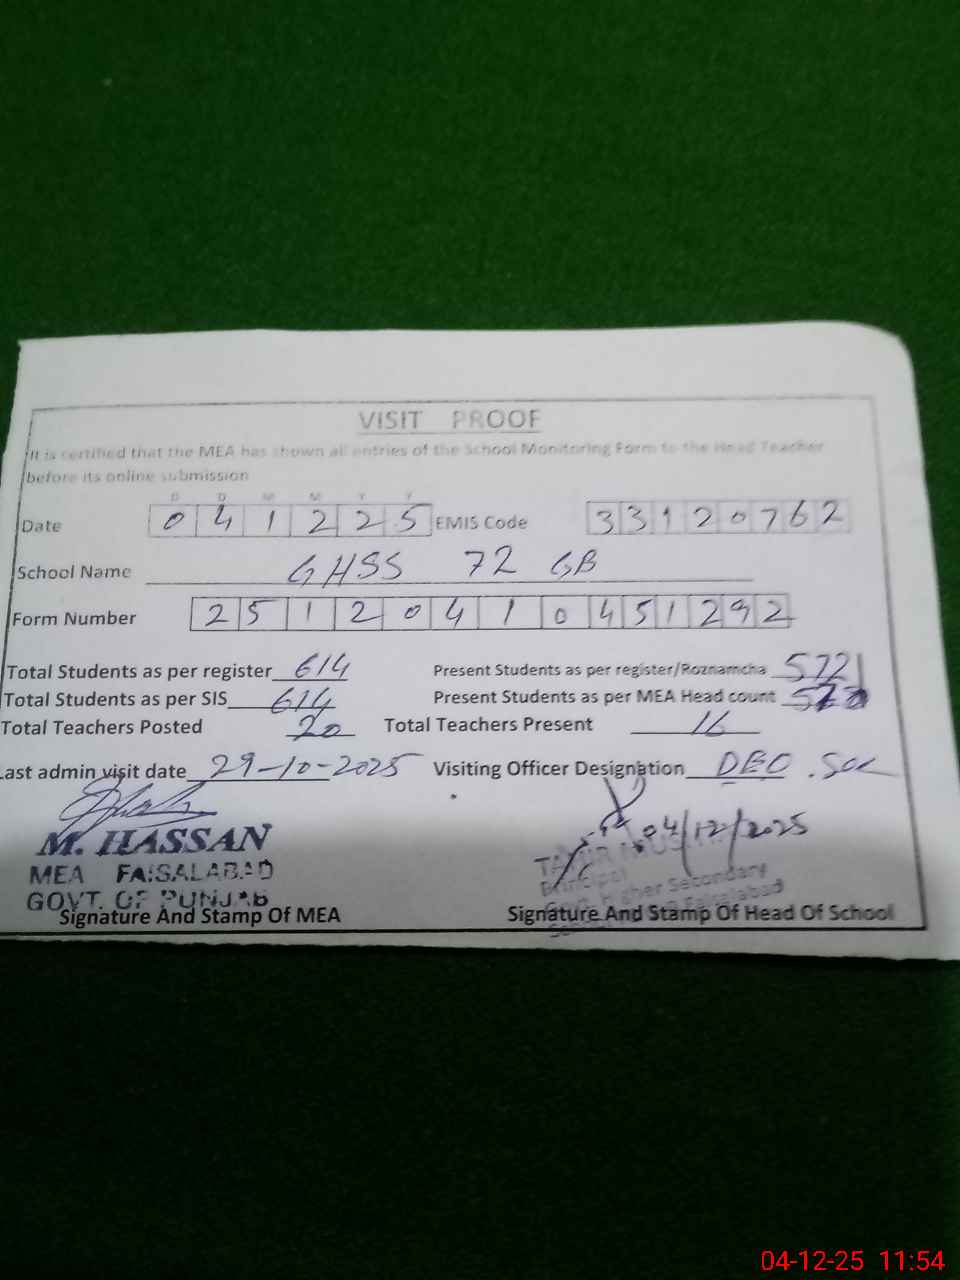 VISIT PROOF
It is certified that the MEA has shown all entries of the School Monitoring Form to the Head Teacher
before its online submission
D D M M Y Y
Date 0 4 1 2 2 5 EMIS Code 3 3 1 2 0 7 6 2
School Name GHSS 72 GB
Form Number 2 5 1 2 0 4 1 0 4 5 1 2 9 2
Total Students as per register 614 Present Students as per register/Roznamcha 572
Total Students as per SIS 614 Present Students as per MEA Head count
Total Teachers Posted 20 Total Teachers Present 16
Last admin visit date 29-10-2025 Visiting Officer Designation DEO
04/12/2025
M. HASSAN
MEA FAISALABAD
GOVT. OF PUNJAB
Principal
Higher Secondary
Faisalabad
Signature And Stamp Of MEA Signature And Stamp Of Head Of School
04-12-25 11:54